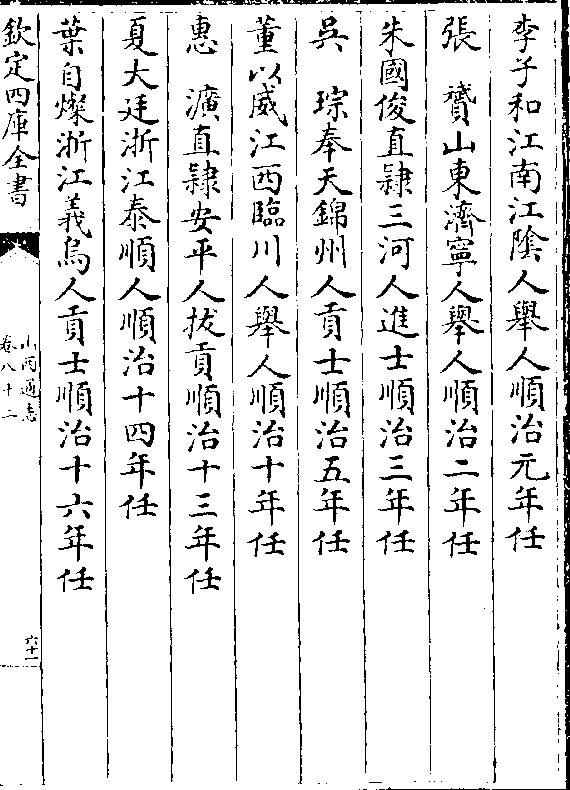 李子和江南江隂人舉人順治元年任
張　贇山東濟寧人舉人順治二年任
朱國俊直隷三河人進士順治三年任
吳　琮奉天錦州人貢士順治五年任
董以威江西臨川人舉人順治十年任
惠　濵直隷安平人拔貢順治十三年任
夏大廷浙江泰順人順治十四年任
葉自燦浙江義烏人貢士順治十六年任
欽定四庫全書
山西通志
卷八十二
六十一